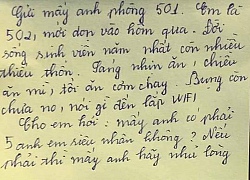 Gửi mấy anh phòng 501. Em là
502, mới dọn vào hôm qua. Đời
sống sinh viên năm nhất còn nhiều
thiếu thốn. Sáng nhịn ăn, chiều
ăn mì, tối ăn cơm chay. Bụng còn
chưa no, nói gì đến lắp WIFI
Cho em hỏi: mấy anh có phải
5 anh em siêu nhân không? Nếu
phải thì mấy anh hãy nhủ lòng